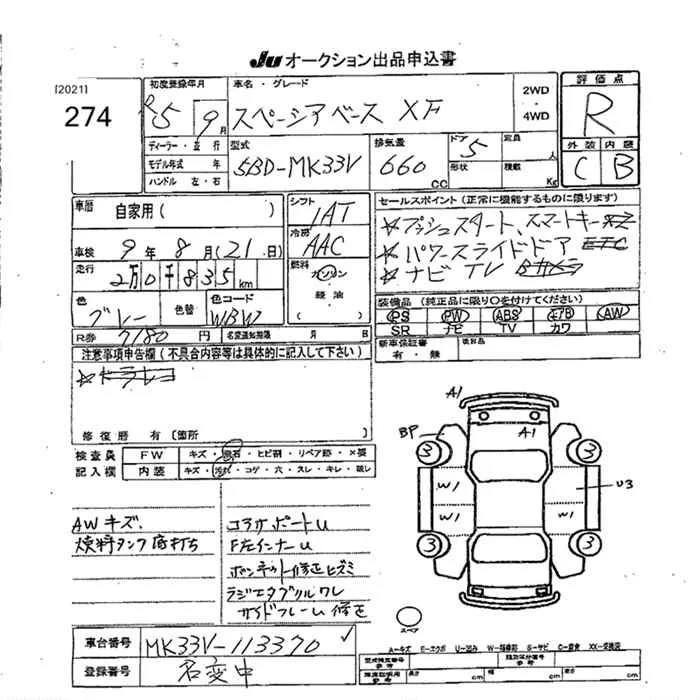 JU オークション出品申込書
[2021]
274
初度登録年月
R5 9月
車名・グレード
スペーシアベース XF
2WD
・
4WD
評価点
R
外装 内装
C B
ディーラー・並行
モデル年式 年
ハンドル 左・右
型式
5BD-MK33V
排気量
660 CC
ドア 5
形状
定員 人
積載 Kg
車歴 自家用( )
シフト
IAT
冷房
AAC
燃料
ガソリン
軽油
( )
セールスポイント(正常に機能するものに限ります)
☆プッシュスタート、スマートキー
☆パワースライドドア ETC
☆ナビ TV Bカメラ
車検 9年 8月(21日)
走行 2万0千835km
色 グレー
色替
色コード
WBW
装備品(純正品に限り○を付けてください)
PS PW ABS エアB AW
SR ナビ TV カワ
R券 7180円
名変通知期限 月 日
新車保証書 有・無
後日品
注意事項申告欄(不具合内容等は具体的に記入して下さい)
☆ドラレコ
修復歴 有〔箇所 〕
検査員
記入欄
FW キズ・飛石・ヒビ割・リペア跡・×要
内装 キズ・汚れ・コゲ・穴・スレ・キレ・破レ
A1
BP
A1
3 3
W1 W1
W1 W1
U3
3 3
スペア
AWキズ、
燃料タンク底打ち
コアサポートU
F左インナーU
ボンネット修正ヒズミ
ラジエタグリルワレ
サイドフレーム修正
車台番号 MK33V-113370 ✓
登録番号 名変中
A-キズ E-エクボ U-凹み W-補修跡 S-サビ C-腐食 XX-交換済
長さ cm 幅 cm 高さ cm